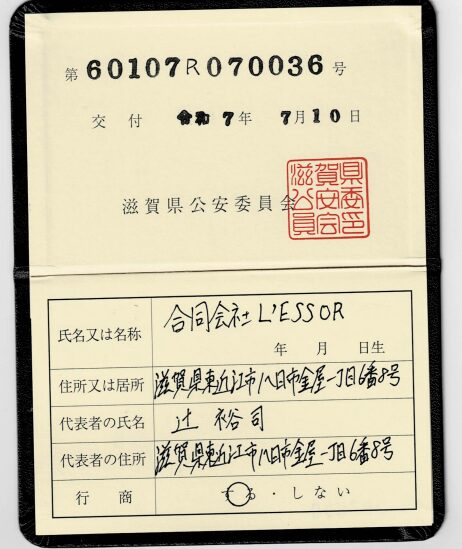 第60107R070036号
交付 令和7年 7月10日
滋賀県公安委員会
滋賀県公安委員会印
氏名又は名称 合同会社 L'ESSOR
年 月 日生
住所又は居所 滋賀県東近江市八日市金屋一丁目6番8号
代表者の氏名 辻 裕司
代表者の住所 滋賀県東近江市八日市金屋一丁目6番8号
行商 する・しない